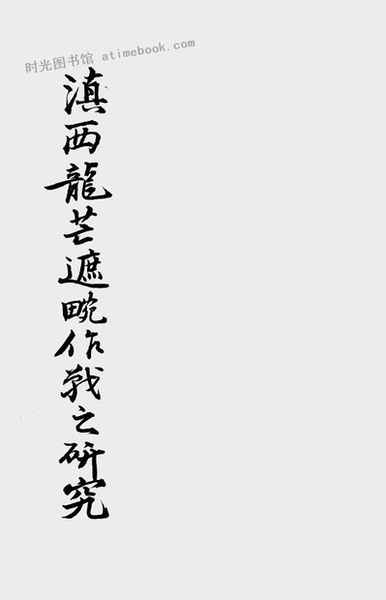 时光图书馆 atimebook.com
滇西龍芒遮畹作戰之研究